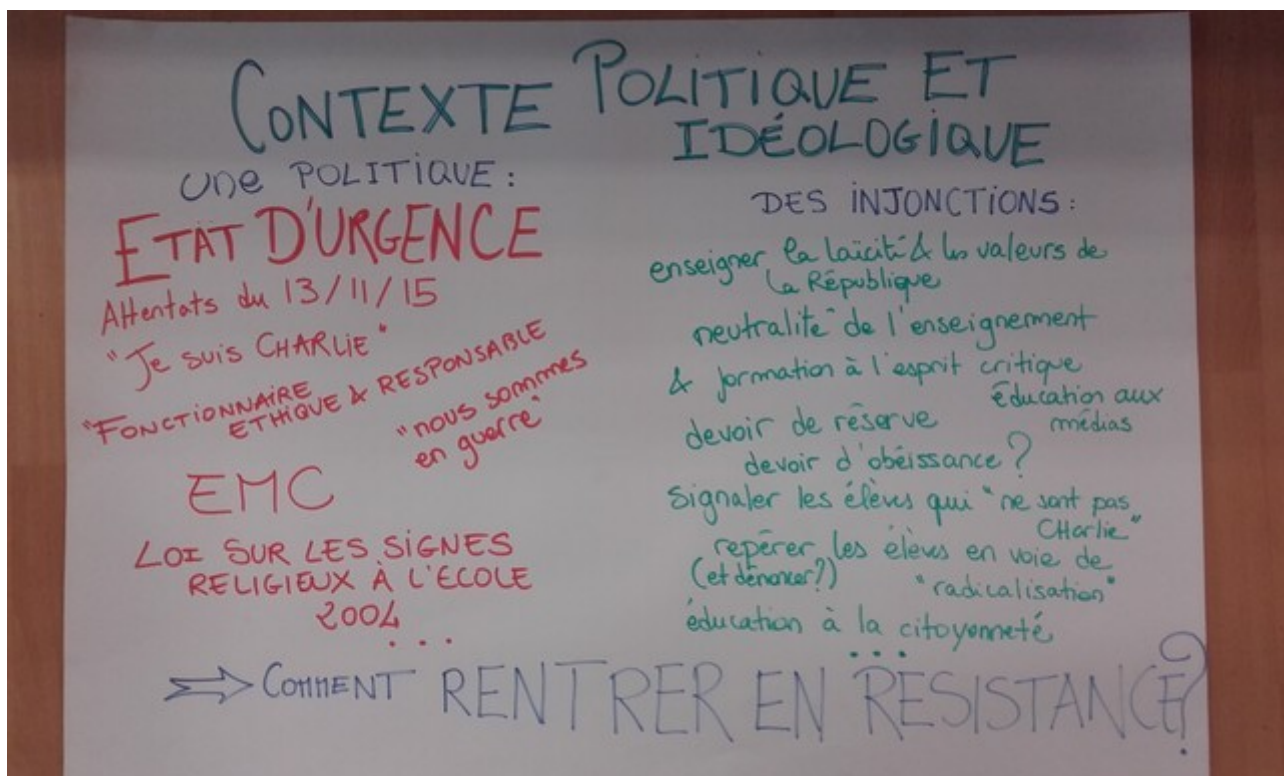 CONTEXTE POLITIQUE ET
IDÉOLOGIQUE
UNE POLITIQUE :
ETAT D'URGENCE
Attentats du 13/11/15
"Je suis CHARLIE"
"FONCTIONNAIRE
ETHIQUE & RESPONSABLE
"nous sommes
en guerre"
EMC
LOI SUR LES SIGNES
RELIGIEUX À L'ECOLE
2004
...
DES INJONCTIONS :
enseigner la laïcité & les valeurs de
la République
neutralité de l'enseignement
& formation à l'esprit critique
éducation aux
médias
devoir de réserve
devoir d'obéissance ?
Signaler les élèves qui "ne sont pas
CHarlie"
repérer les élèves en voie de
(et dénoncer?) "radicalisation"
éducation à la citoyenneté
...
⇒ COMMENT RENTRER EN RESISTANCE ?